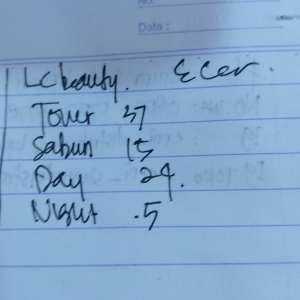 No:
Date :
Lc beauty. Ecer.
Toner 37
Sabun 15
Day 24.
Night .5